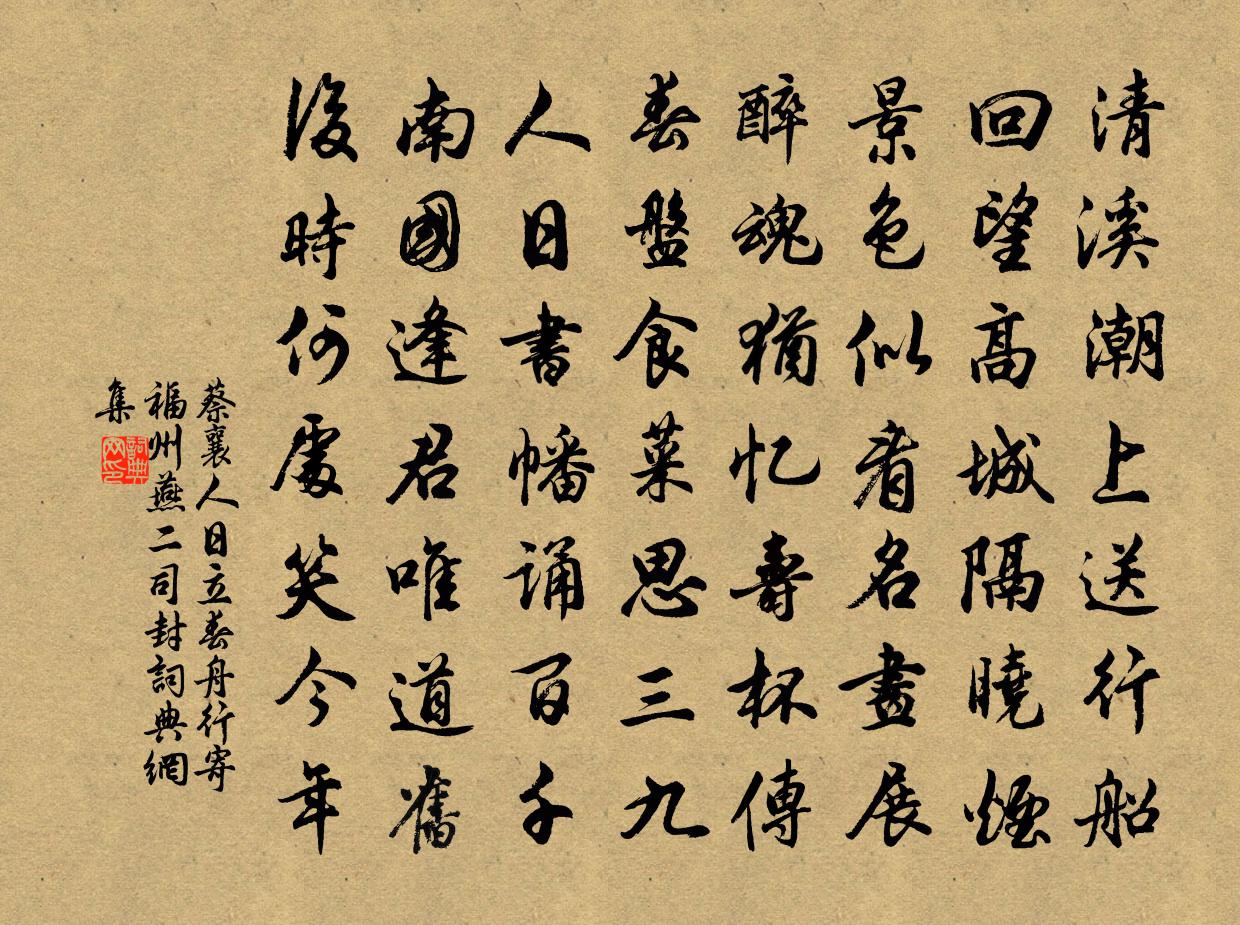 清溪潮上送行船
回望高城隔曉煙
景色似看名畫展
醉魂猶忆壽杯傳
春盤食菜思三九
人日書幡誦百千
南國逢君唯道舊
後時何處笑今年
蔡襄人日立春舟行寄
福州燕二司封詞典網
集